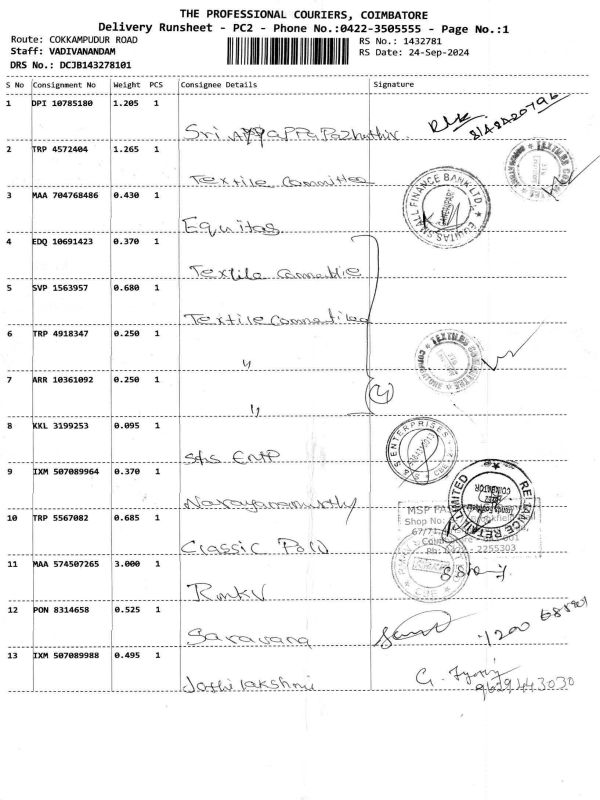 THE PROFESSIONAL COURIERS, COIMBATORE
Delivery Runsheet - PC2 - Phone No.:0422-3505555 - Page No.:1
Route: COKKAMPUDUR ROAD
RS No.: 1432781
Staff: VADIVANANDAM
RS Date: 24-Sep-2024
DRS No.: DCJB143278101
S No Consignment No Weight PCS Consignee Details Signature
1 DPI 10785180 1.205 1
Sri
8148420796
2 TRP 4572404 1.265 1
Textile Committee
3 MAA 704768486 0.430 1
Equitas
EQUITAS SMALL FINANCE BANK LTD.
4 EDQ 10691423 0.370 1
Textile Committie
5 SVP 1563957 0.680 1
Textile
6 TRP 4918347 0.250 1
〃
TEXTILES COMMITTEE
7 ARR 10361092 0.250 1
〃
4
8 KKL 3199253 0.095 1
S&S Entp
S ENTERPRISES
9 IXM 507089964 0.370 1
Narayanamurthy
RELIANCE RETAIL LIMITED
10 TRP 5567082 0.685 1
Classic Polo
MSP
Shop No:
67/71,
Ph: 0422 - 2255303
11 MAA 574507265 3.000 1
Rmkv
12 PON 8314658 0.525 1
Saravana
13 IXM 507089988 0.495 1
Jothilakshmi
9629443030